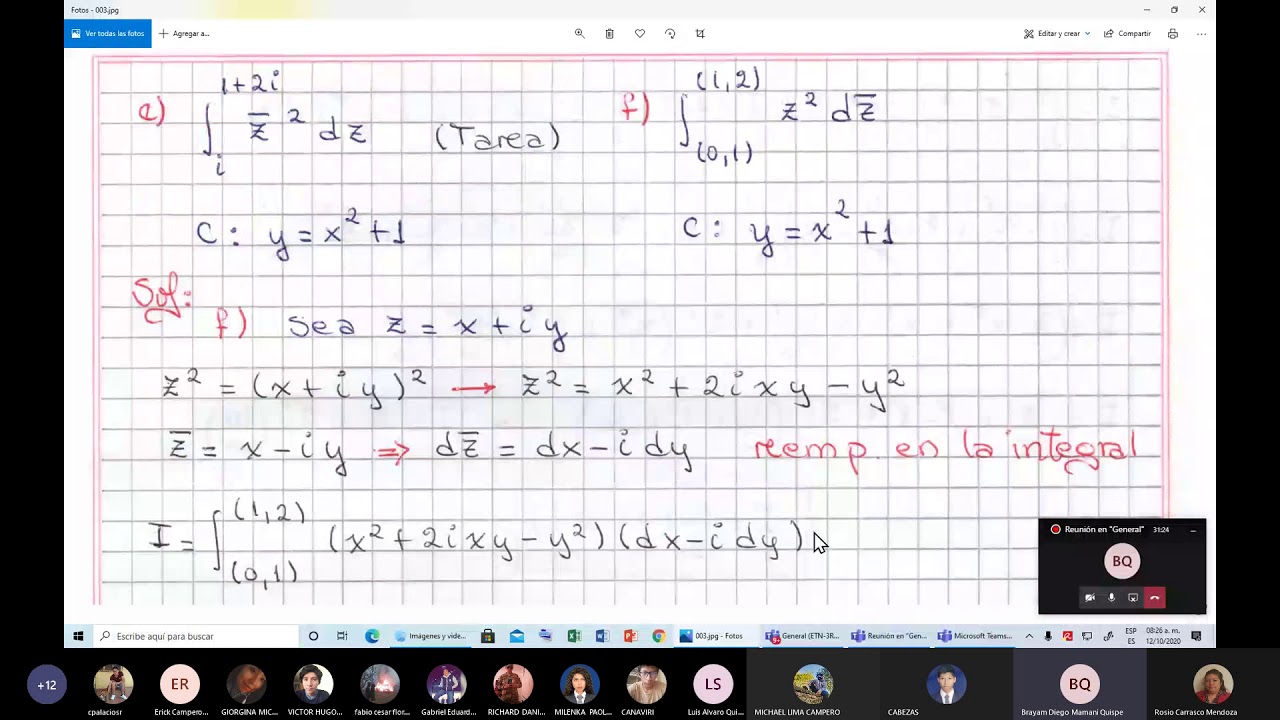 Fotos - 003.jpg
Ver todas las fotos
Agregar a...
Editar y crear
Compartir
e) ∫_i^{1+2i} z̅² dz (Tarea)
f) ∫_{(0,1)}^{(1,2)} z² dz̅
C: y = x² + 1
C: y = x² + 1
Sol:
f) Sea z = x + iy
z² = (x + iy)² → z² = x² + 2ixy − y²
z̅ = x − iy ⇒ dz̅ = dx − idy reemp. en la integral
I = ∫_{(0,1)}^{(1,2)} (x² + 2ixy − y²)(dx − idy)
Reunión en "General" 31:24
BQ
Escribe aquí para buscar
Imágenes y vide...
003.jpg - Fotos
General (ETN-3R...
Reunión en "Gen...
Microsoft Teams...
ESP
ES
08:26 a. m.
12/10/2020
+12
ER
LS
BQ
cpalaciosr
Erick Campero...
GIORGINA MIC...
VICTOR HUGO...
fabio cesar flor...
Gabriel Eduard...
RICHARD DANI...
MILENKA PAOL...
CANAVIRI
Luis Alvaro Qui...
MICHAEL LIMA CAMPERO
CABEZAS
Brayam Diego Mamani Quispe
Rosio Carrasco Mendoza